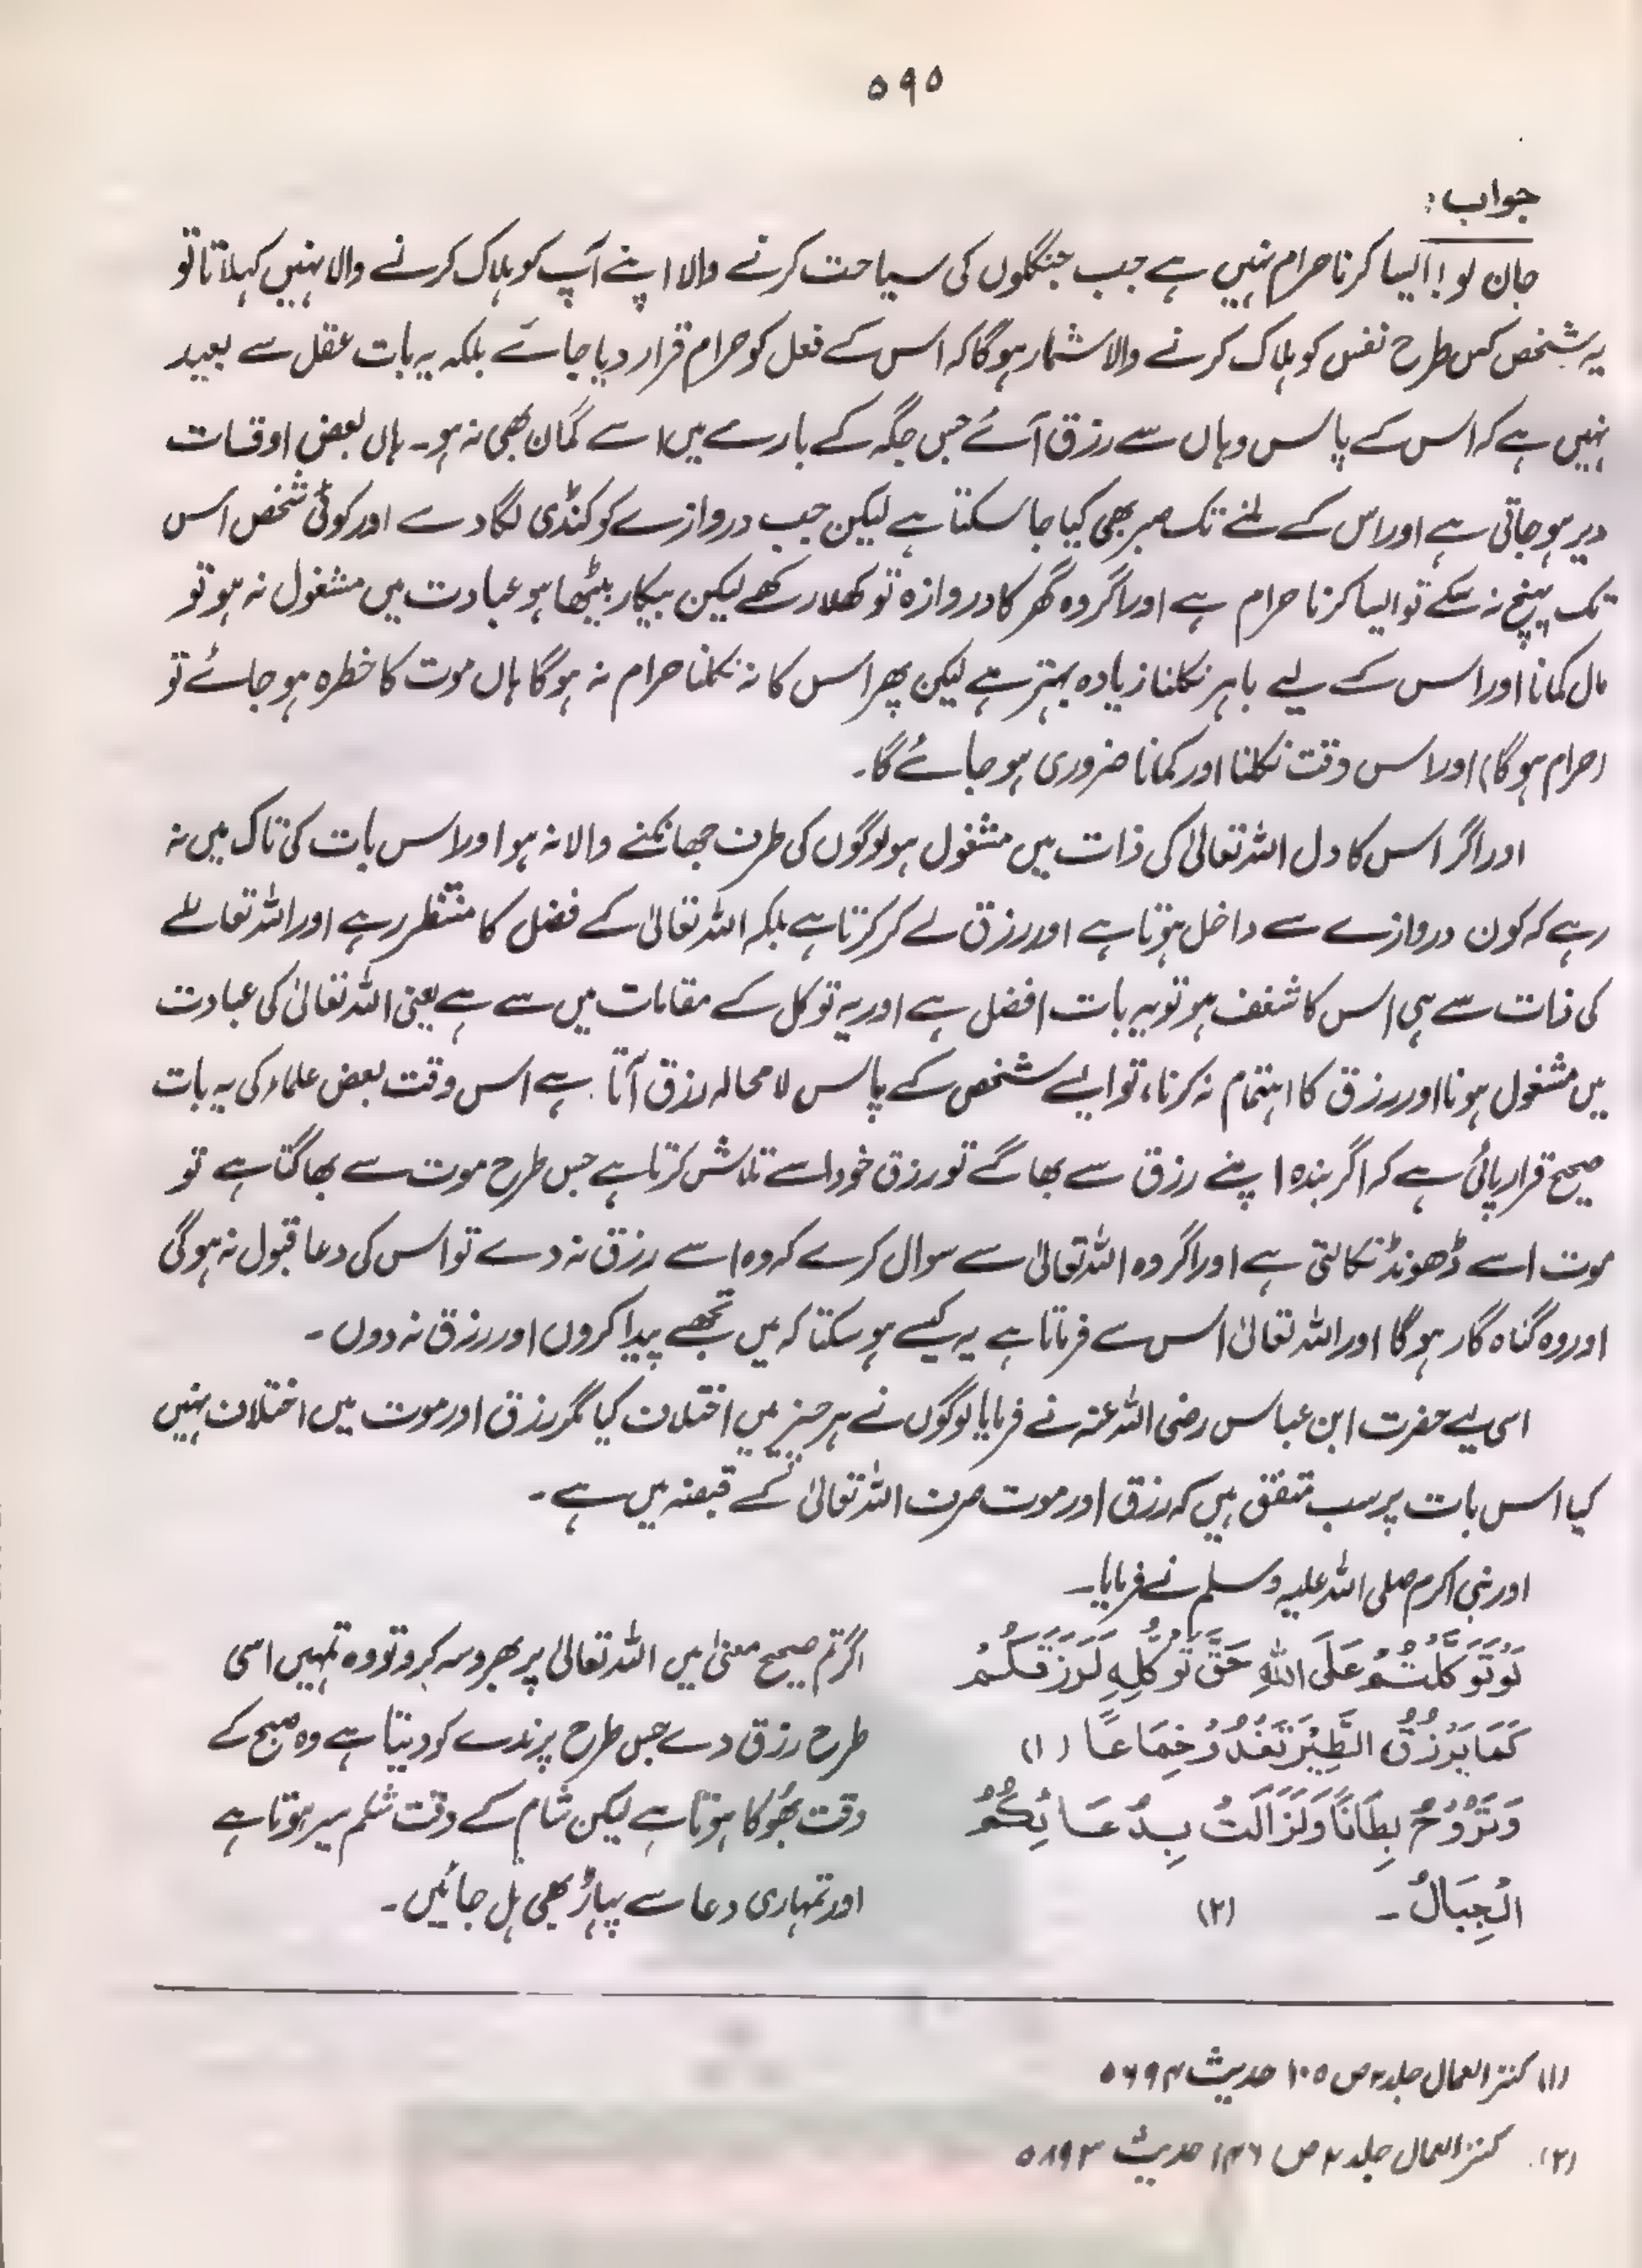 ۵۹۵
جواب:
جان لو! ایسا کرنا حرام نہیں ہے جب جنگلوں کی سیاحت کرنے والا اپنے آپ کو ہلاک کرنے والا نہیں کہلاتا تو
یہ شخص کس طرح نفس کو ہلاک کرنے والا شمار ہوگا کہ اس کے فعل کو حرام قرار دیا جائے بلکہ یہ بات عقل سے بعید
نہیں ہے کہ اس کے پاس وہاں سے رزق آئے جس جگہ کے بارے میں اسے گمان بھی نہ ہو۔ ہاں بعض اوقات
دیر ہو جاتی ہے اور اس کے ملنے تک صبر بھی کیا جا سکتا ہے لیکن جب دروازے کو کنڈی لگا دے اور کوئی شخص اس
تک پہنچ نہ سکے تو ایسا کرنا حرام ہے اور اگر وہ گھر کا دروازہ تو کھلا رکھے لیکن بیکار بیٹھا ہو عبادت میں مشغول نہ ہو تو
مال کمانا اور اس کے لیے باہر نکلنا زیادہ بہتر ہے لیکن پھر اس کا نہ نکلنا حرام نہ ہوگا ہاں موت کا خطرہ ہو جائے تو
(حرام ہوگا) اور اس وقت نکلنا اور کمانا ضروری ہو جائے گا۔
اور اگر اس کا دل اللہ تعالیٰ کی ذات میں مشغول ہو لوگوں کی طرف جھانکنے والا نہ ہو اور اس بات کی تاک میں نہ
رہے کہ کون دروازے سے داخل ہوتا ہے اور رزق لے کر کرتا ہے بلکہ اللہ تعالیٰ کے فضل کا منتظر رہے اور اللہ تعالےٰ
کی ذات سے ہی اس کا شغف ہو تو یہ بات افضل ہے اور یہ توکل کے مقامات میں سے ہے یعنی اللہ تعالیٰ کی عبادت
میں مشغول ہونا اور رزق کا اہتمام نہ کرنا، تو ایسے شخص کے پاس لامحالہ رزق آتا ہے اس وقت بعض علماء کی یہ بات
صحیح قرار پائی ہے کہ اگر بندہ اپنے رزق سے بھاگے تو رزق خود اسے تلاش کرتا ہے جس طرح موت سے بھاگتا ہے تو
موت اسے ڈھونڈ نکالتی ہے اور اگر وہ اللہ تعالیٰ سے سوال کرے کہ وہ اسے رزق نہ دے تو اس کی دعا قبول نہ ہوگی
اور وہ گناہ گار ہوگا اور اللہ تعالیٰ اس سے فرماتا ہے یہ کیسے ہو سکتا کہ میں تجھے پیدا کروں اور رزق نہ دوں۔
اسی لیے حضرت ابن عباس رضی اللہ عنہ نے فرمایا لوگوں نے ہر چیز میں اختلاف کیا مگر رزق اور موت میں اختلاف نہیں
کیا اس بات پر سب متفق ہیں کہ رزق اور موت صرف اللہ تعالیٰ کے قبضہ میں ہے۔
اور نبی اکرم صلی اللہ علیہ وسلم نے فرمایا۔
لَوْ تَوَكَّلْتُمْ عَلَى اللهِ حَقَّ تَوَكُّلِهِ لَرَزَقَكُمْ
كَمَا يَرْزُقُ الطَّيْرَ تَغْدُوْ خِمَاعًا (۱)
وَتَرُوْحُ بِطَانًا وَلَزَالَتْ بِدُعَائِكُمُ
الْجِبَالُ۔ (۲)
اگر تم صحیح معنیٰ میں اللہ تعالیٰ پر بھروسہ کرو تو وہ تمہیں اسی
طرح رزق دے جس طرح پرندے کو دیتا ہے وہ صبح کے
وقت بھوکا ہوتا ہے لیکن شام کے وقت شکم سیر ہوتا ہے
اور تمہاری دعا سے پہاڑ بھی ہل جائیں۔
(۱) کنز العمال جلد ۳ ص ۱۰۵ حدیث ۵۶۹۴
(۲) کنز العمال جلد ۳ ص ۱۴۶ حدیث ۵۸۹۳